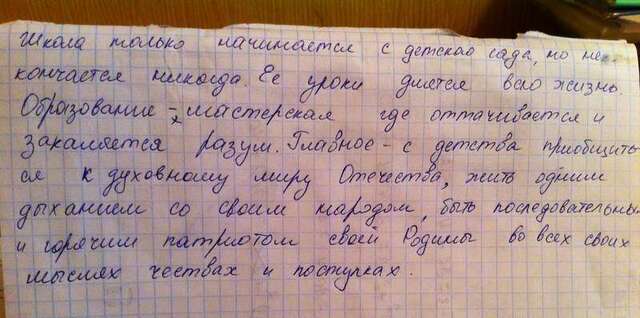 Школа только начинается с детского сада, но не
кончается никогда. Ее уроки длятся всю жизнь.
Образование - мастерская где оттачивается и
закаляется разум. Главное - с детства приобщить
ся к духовному миру Отечества, жить одним
дыханием со своим народом, быть последовательны
и горячим патриотом своей Родины во всех своих
мыслях чествах и поступках.